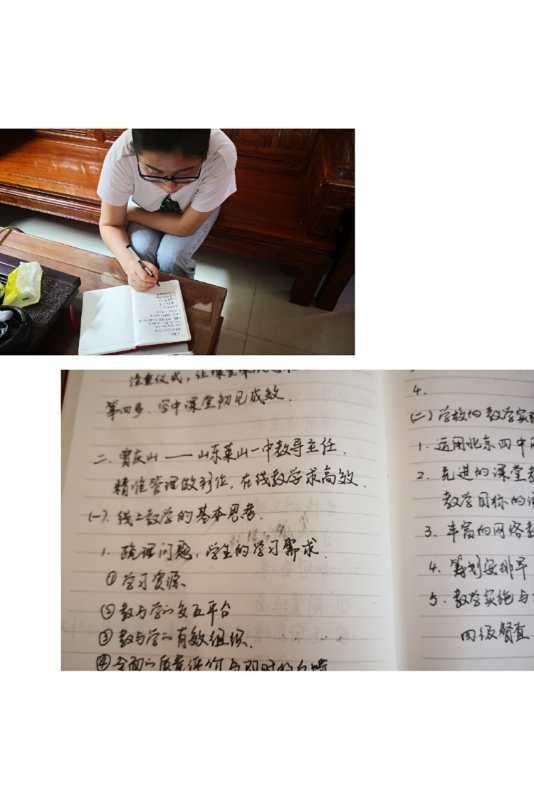 第四步:空中课堂初见成效.
二.曹庆山——山东莱山一中教导主任.
精准管理做到位,在线教学求高效.
(一).线上教学的基本思考.
1.疏理问题,学生的学习需求.
①学习资源
②教与学的交互平台
③教与学的有效组织.
④全面的质量评价与即时的
4.
(二)学校的教学实
1.运用北京四中
2.先进的课堂教
教学目标的
3.丰富的网络教
4.筹划安排早
5.教学实施与
四级督查